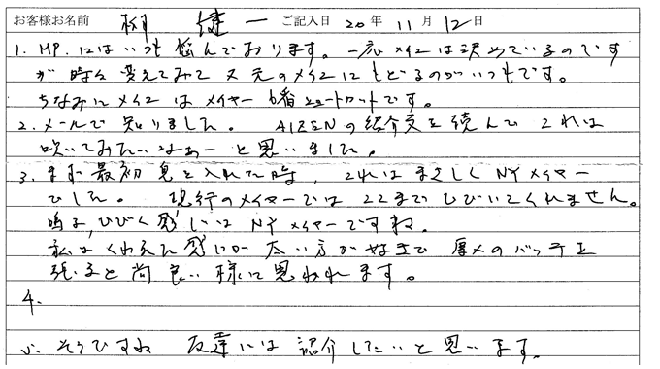 お客様お名前 柳 健一 ご記入日 20年 11月 12日
1. MP.にはいつも悩んでおります。一応メインは決めているのです
が時々変えてみて又元のメインにもどるのがいつもです。
ちなみにメインはメイヤー 6番 ニュートロットです。
2. メールで知りました。AIZENの紹介文を読んでこれは
吹いてみたいなぁーと思いました。
3. まず最初息を入れた時、これはまさしくNYメイヤー
でした。現行のメイヤーでは ここまでひびいてくれません。
鳴る、ひびく感じはNYメイヤーですね。
私はくわえた感じが太い方が好きで厚メのパッチを
張ると尚良い様に思われます。
4.
5. そうですね 友達には紹介したいと思います。